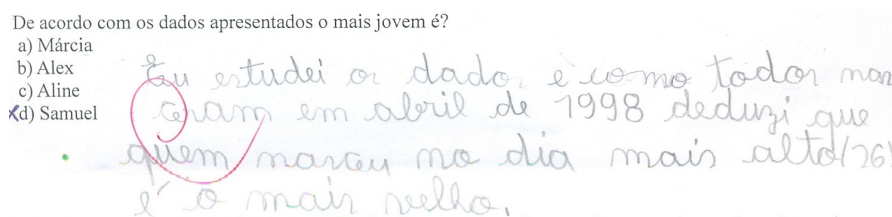 De acordo com os dados apresentados o mais jovem é?
a) Márcia
b) Alex
c) Aline
xd) Samuel
Eu estudei os dados e como todos nas
ceram em abril de 1998 deduzi que
quem nasceu no dia mais alto (26)
é o mais velho.